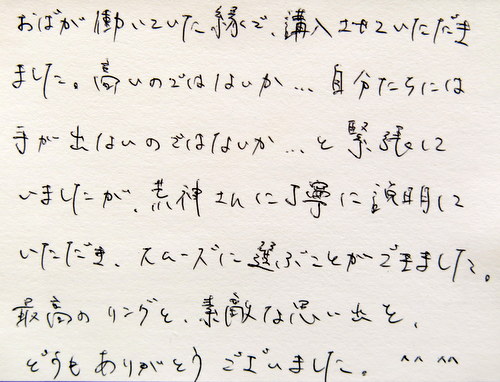 おばが働いていた縁で、購入させていただき
ました。高いのではないか…自分たちには
手が出ないのではないか…と緊張して
いましたが、荒神さんに丁寧に説明して
いただき、スムーズに選ぶことができました。
最高のリングと、素敵な思い出を、
どうもありがとうございました。^^ ^^